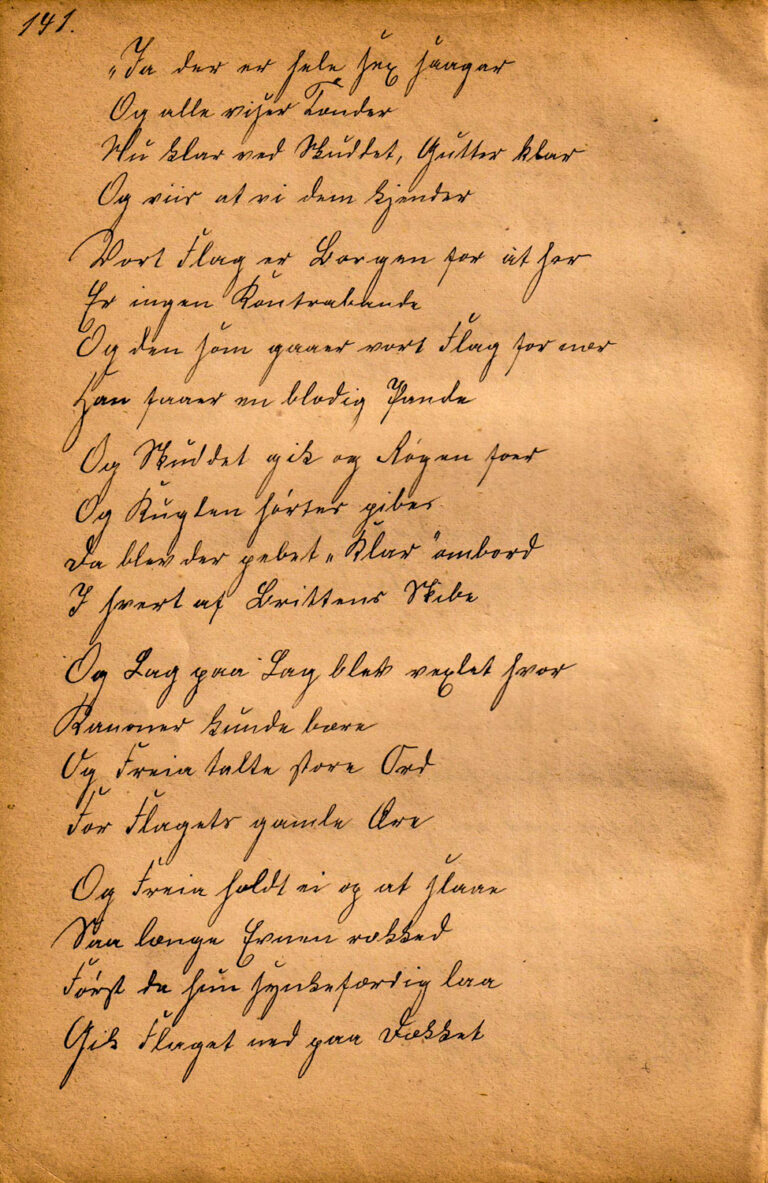 141.
„Ja der er hele sex saagar
Og alle viser Tænder
Nu klar ved Skuddet, Gutter klar
Og viis at vi dem kjender
Vort Flag er Borgen for at her
Er ingen Kontrabande
Og den som gaaer vort Flag for nær
Han faaer en blodig Pande
Og Skuddet gik og Røgen foer
Og Kuglen hørtes pibe
Da blev der pebet „Klar" ombord
I hvert af Brittens Skibe
Og Lag paa Lag blev vexlet hvor
Kanoner kunde bære
Og Freia talte store Ord
For Flagets gamle Ære
Og Freia holdt ei op at slaae
Saa længe Evnen rækked
Først da hun synkefærdig laa
Gik Flaget ned paa Dækket